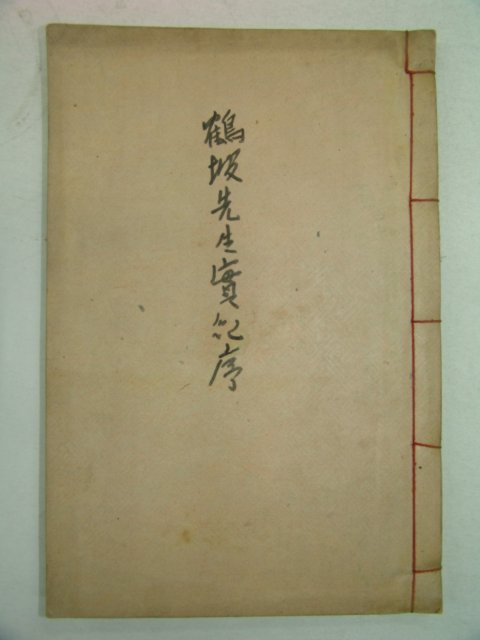 鶴坡先生實紀序